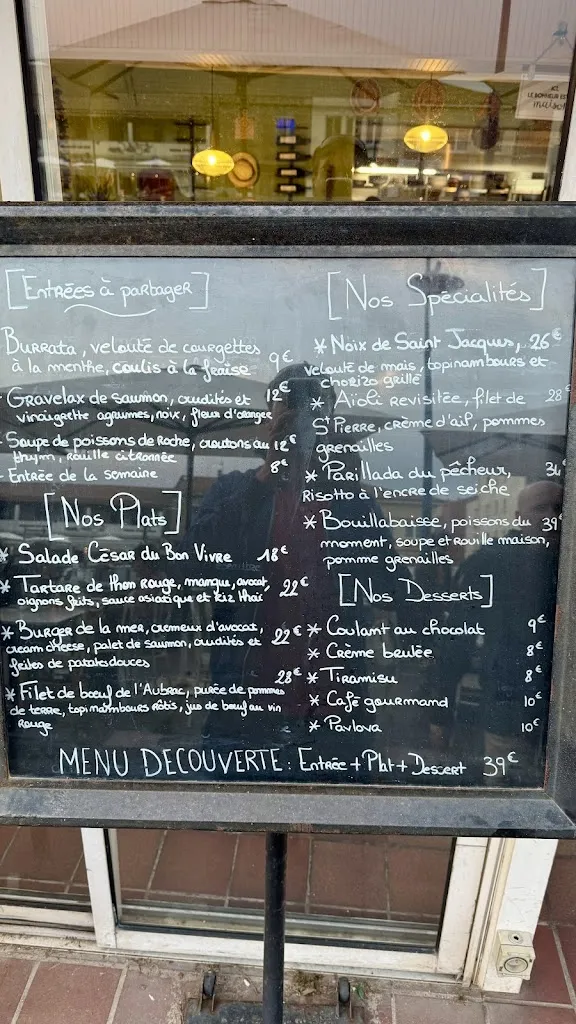 ICI
LE BONHEUR EST
maison
[Entrées à partager]
Burrata, velouté de courgettes
à la menthe, coulis à la fraise 9€
- Gravelax de saumon, crudités et 12€
vinaigrette agrumes, noix, fleur d'oranger
- Soupe de poissons de Roche, croutons au 12€
thym, rouille citronnée
- Entrée de la semaine 8€
[Nos Plats]
* Salade César du Bon Vivre 18€
* Tartare de thon rouge, mangue, avocat, 22€
oignons frits, sauce asiatique et riz thaï
* Burger de la mer, crémeux d'avocat, 22€
cream cheese, palet de saumon, crudités et
frites de patates douces
* Filet de bœuf de l'Aubrac, purée de pommes 28€
de terre, topinambours rôtis, jus de bœuf au vin
rouge
[Nos Spécialités]
* Noix de Saint Jacques, 26€
velouté de maïs, topinambours et
chorizo grillé
* Aïoli revisitée, filet de 28€
St Pierre, crème d'ail, pommes
grenailles
* Parillada du pêcheur, 34€
Risotto à l'encre de seiche
* Bouillabaisse, poissons du 39€
moment, soupe et rouille maison,
pomme grenailles
[Nos Desserts]
* Coulant au chocolat 9€
* Crème brulée 8€
* Tiramisu 8€
* Café gourmand 10€
* Pavlova 10€
MENU DECOUVERTE : Entrée + Plat + Dessert 39€